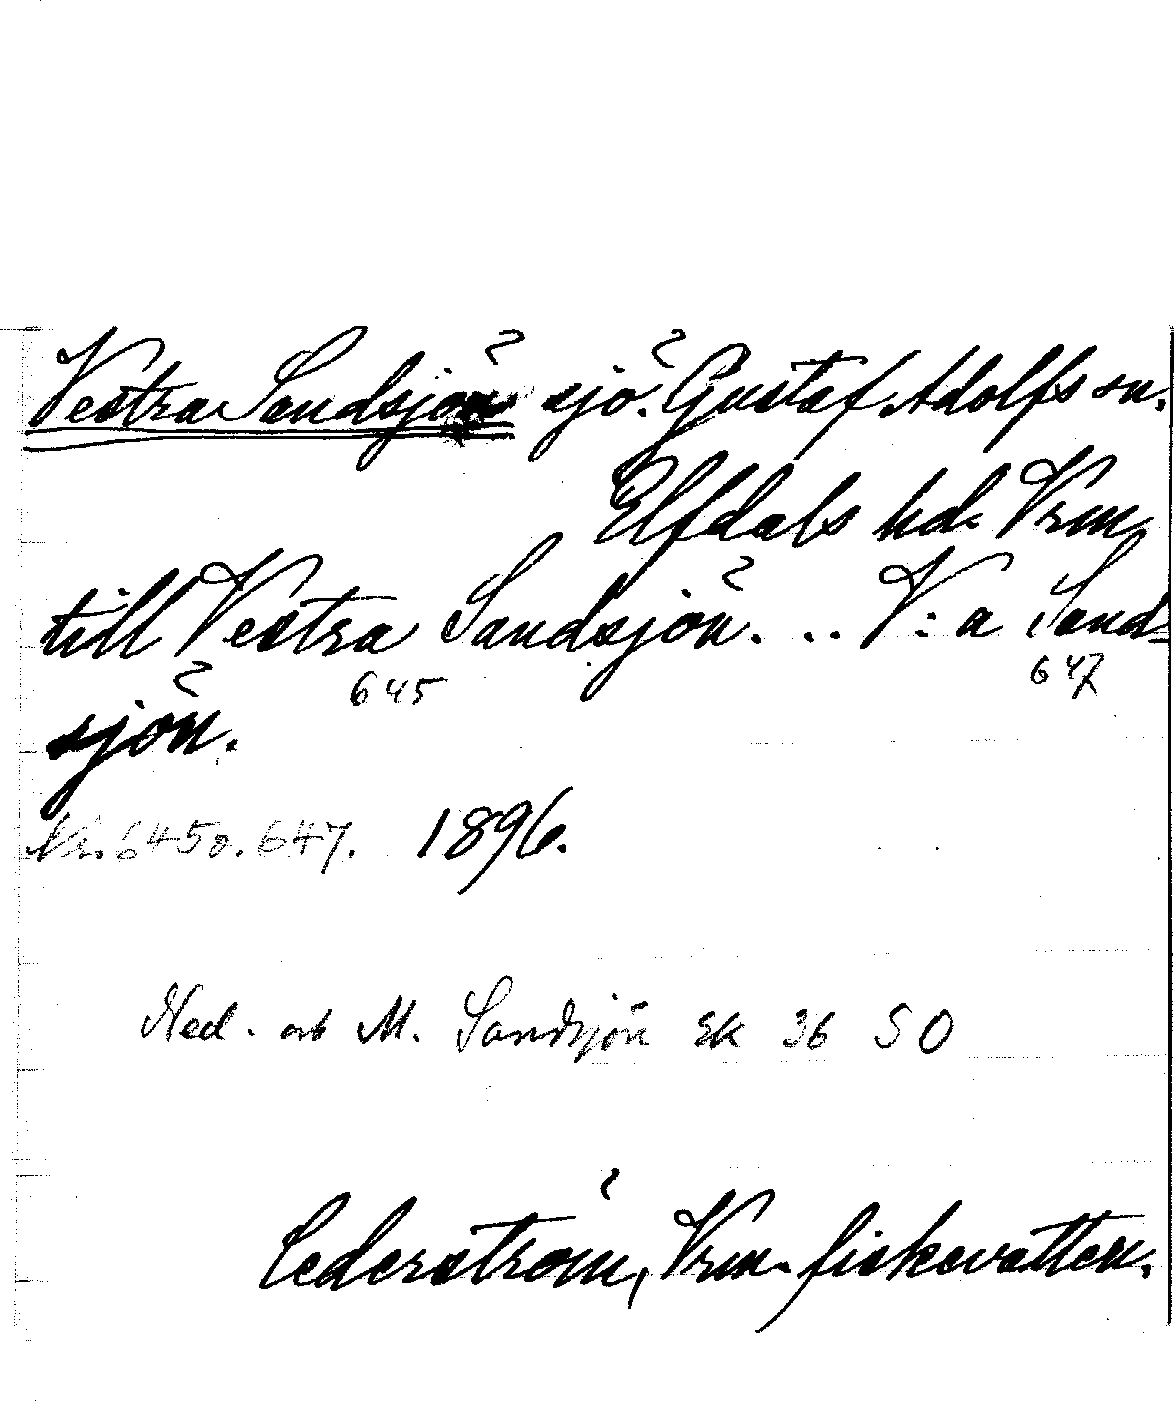 Vestra Sandsjön sjö. Gustaf Adolfs sn.
Elfdals hd. Vrm.
till Vestra Sandsjön. ... V:a Sand-
645 647
sjön.
Nr. 645 o. 647. 1896.
M. Sandsjön EK 36 SO
Cederström, Vrm. fiskevatten.